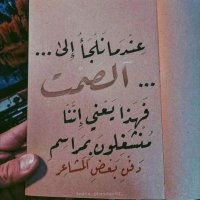 عِنْدَمَا نَلْجَأُ إِلَى ...
... الصَّمْت
فَهٰذَا يَعْنِي إِنَّنَا
مُنْشَغِلُونَ بِمَرَاسِمِ
دَفْنِ بَعْضِ المَشَاعِر